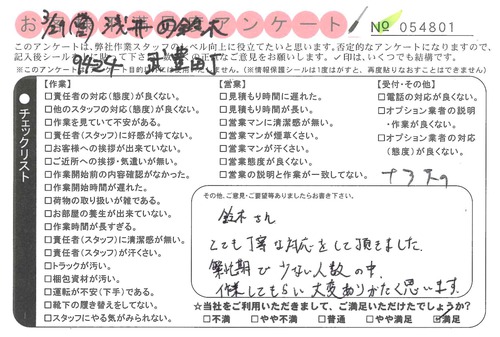 お客様アンケート
№ 054801
このアンケートは、弊社作業スタッフのレベル向上に役立てたいと思います。否定的なアンケートになりますので、
※このアンケート
(※情報保護シールは1度はがすと、再度貼りなおすことはできません)
●チェックリスト
【作業】
□責任者の対応(態度)が良くない。
□他のスタッフの対応(態度)が良くない。
□作業を見ていて不安がある。
□責任者(スタッフ)に好感が持てない。
□お客様への挨拶が出来ていない。
□ご近所への挨拶・気遣いが無い。
□作業開始前の内容確認がなかった。
□作業開始時間が遅れた。
□荷物の取り扱いが雑である。
□お部屋の養生が出来ていない。
□作業時間が長すぎる。
□責任者(スタッフ)に清潔感が無い。
□責任者(スタッフ)が汗くさい。
□トラックが汚い。
□梱包資材が汚い。
□運転が不安(下手)である。
□靴下の履き替えをしてない。
□スタッフにやる気がみられない。
【営業】
□見積もり時間に遅れた。
□見積もり時間が長い。
□営業マンに清潔感が無い。
□営業マンが煙草くさい。
□営業マンが汗くさい。
□営業態度が良くない。
□営業の説明と作業が一致してない。
【受付・その他】
□電話の対応が良くない。
□オプション業者の説明
・作業が良くない。
□オプション業者の対応
(態度)が良くない。
その他、ご意見・ご要望等ありましたらお書き下さい。
鈴木さん
とても丁寧な対応をして頂きました。
繁忙期で少ない人数の中、
作業してもらい大変ありがたく思います。
☆当社をご利用いただきまして、ご満足いただけたでしょうか?
□不満 □やや不満 □普通 □やや満足 ☑満足